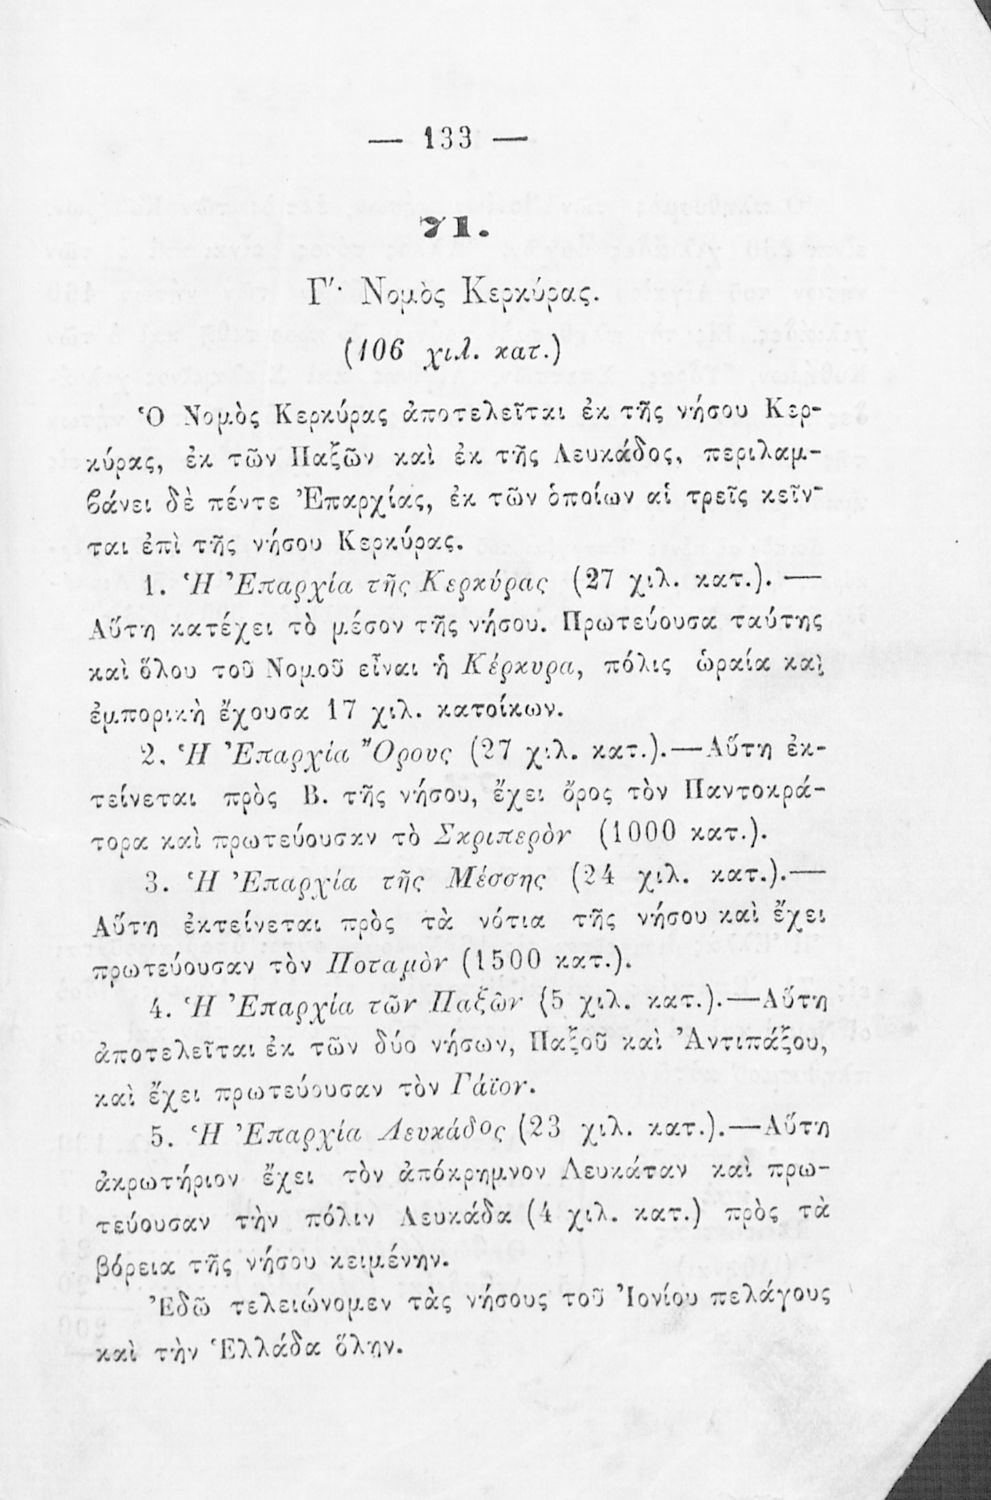 — 133 —
71.
Γ΄· Νομὸς Κερκύρας.
(106 χιλ. κατ.)
Ὁ Νομὸς Κερκύρας ἀποτελεῖται ἐκ τῆς νήσου Κερ-
κύρας, ἐκ τῶν Παξῶν καὶ ἐκ τῆς Λευκάδος, περιλαμ-
βάνει δὲ πέντε Ἐπαρχίας, ἐκ τῶν ὁποίων αἱ τρεῖς κεῖν-
ται ἐπὶ τῆς νήσου Κερκύρας.
1. Ἡ Ἐπαρχία τῆς Κερκύρας (27 χιλ. κατ.). —
Αὕτη κατέχει τὸ μέσον τῆς νήσου. Πρωτεύουσα ταύτης
καὶ ὅλου τοῦ Νομοῦ εἶναι ἡ Κέρκυρα, πόλις ὡραία καὶ
ἐμπορικὴ ἔχουσα 17 χιλ. κατοίκων.
2. Ἡ Ἐπαρχία Ὄρους (27 χιλ. κατ.).—Αὕτη ἐκ-
τείνεται πρὸς Β. τῆς νήσου, ἔχει ὄρος τὸν Παντοκρά-
τορα καὶ πρωτεύουσαν τὸ Σκριπερὸν (1000 κατ.).
3. Ἡ Ἐπαρχία τῆς Μέσσης (24 χιλ. κατ.).—
Αὕτη ἐκτείνεται πρὸς τὰ νότια τῆς νήσου καὶ ἔχει
πρωτεύουσαν τὸν Ποταμὸν (1500 κατ.).
4. Ἡ Ἐπαρχία τῶν Παξῶν (5 χιλ. κατ.).—Αὕτη
ἀποτελεῖται ἐκ τῶν δύο νήσων, Παξοῦ καὶ Ἀντιπάξου,
καὶ ἔχει πρωτεύουσαν τὸν Γάϊον.
5. Ἡ Ἐπαρχία Λευκάδος (23 χιλ. κατ.).—Αὕτη
ἀκρωτήριον ἔχει τὸν ἀπόκρημνον Λευκάταν καὶ πρω-
τεύουσαν τὴν πόλιν Λευκάδα (4 χιλ. κατ.) πρὸς τὰ
βόρεια τῆς νήσου κειμένην.
Ἐδῶ τελειώνομεν τὰς νήσους τοῦ Ἰονίου πελάγους
καὶ τὴν Ἑλλάδα ὅλην.